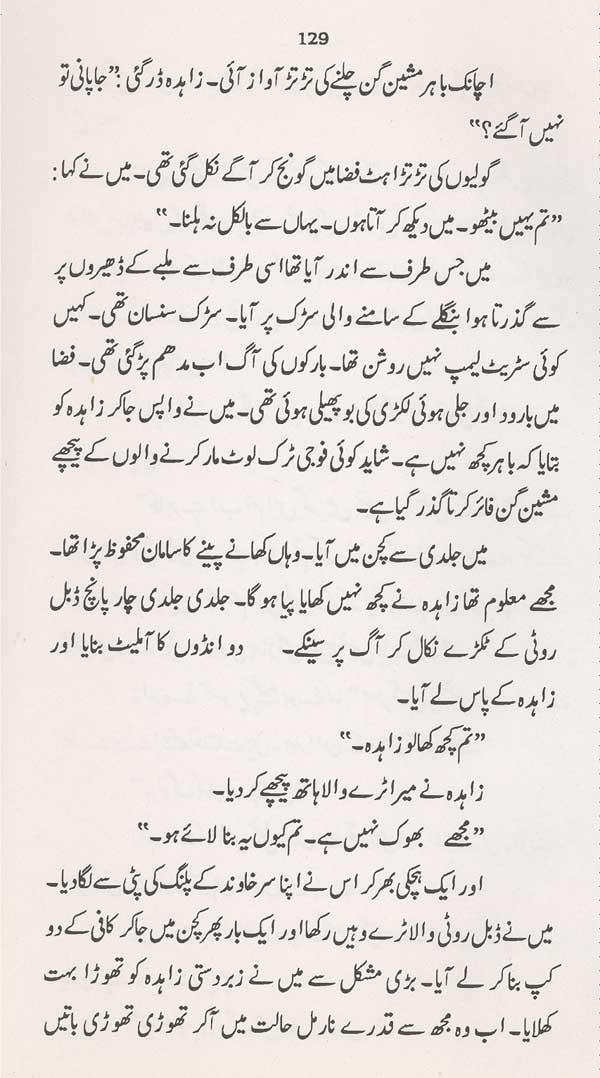 129
اچانک باہر مشین گن چلنے کی تڑتڑ آواز آئی۔ زاہدہ ڈر گئی: ”جاپانی تو
نہیں آگئے؟“
گولیوں کی تڑتڑاہٹ فضا میں گونج کر آگے نکل گئی تھی۔ میں نے کہا:
”تم یہیں بیٹھو۔ میں دیکھ کر آتا ہوں۔ یہاں سے بالکل نہ ہلنا۔“
میں جس طرف سے اندر آیا تھا اسی طرف سے ملبے کے ڈھیروں پر
سے گذرتا ہوا بنگلے کے سامنے والی سڑک پر آیا۔ سڑک سنسان تھی۔ کہیں
کوئی سٹریٹ لیمپ نہیں روشن تھا۔ بارکوں کی آگ اب مدھم پڑ گئی تھی۔ فضا
میں بارود اور جلی ہوئی لکڑی کی بو پھیلی ہوئی تھی۔ میں نے واپس جا کر زاہدہ کو
بتایا کہ باہر کچھ نہیں ہے۔ شاید کوئی فوجی ٹرک لوٹ مار کرنے والوں کے پیچھے
مشین گن فائر کرتا گذر گیا ہے۔
میں جلدی سے کچن میں آیا۔ وہاں کھانے پینے کا سامان محفوظ پڑا تھا۔
مجھے معلوم تھا زاہدہ نے کچھ نہیں کھایا پیا ہو گا۔ جلدی جلدی چار پانچ ڈبل
روٹی کے ٹکڑے نکال کر آگ پر سینکے۔ دو انڈوں کا آملیٹ بنایا اور
زاہدہ کے پاس لے آیا۔
”تم کچھ کھا لو زاہدہ۔“
زاہدہ نے میرا ٹرے والا ہاتھ پیچھے کر دیا۔
”مجھے بھوک نہیں ہے۔ تم کیوں یہ بنا لائے ہو۔“
اور ایک ہچکی بھر کر اس نے اپنا سر خاوند کے پلنگ کی پٹی سے لگا دیا۔
میں نے ڈبل روٹی والا ٹرے وہیں رکھا اور ایک بار پھر کچن میں جا کر کافی کے دو
کپ بنا کر لے آیا۔ بڑی مشکل سے میں نے زبردستی زاہدہ کو تھوڑا بہت
کھلایا۔ اب وہ مجھ سے قدرے نارمل حالت میں آکر تھوڑی تھوڑی باتیں